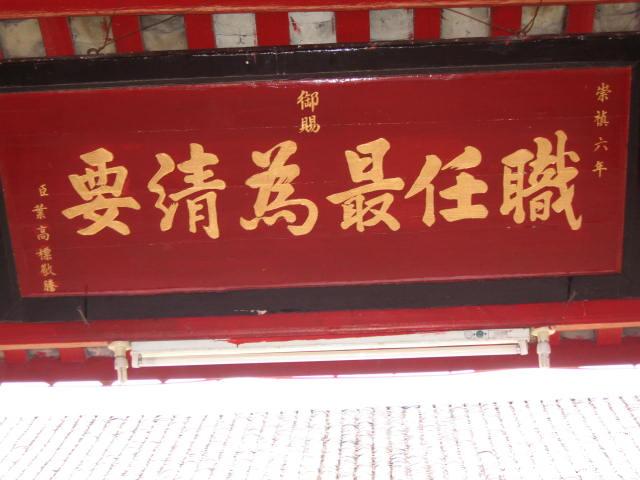 崇禎六年
御賜
職任最為清要
臣葉高標敬謄